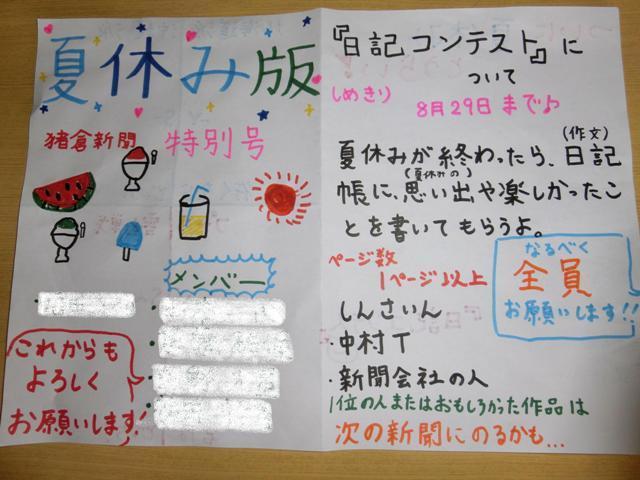 夏休み版
猪倉新聞 特別号
メンバー
これからも
よろしく
お願いします!
『日記コンテスト』に
ついて
しめきり
8月29日まで♪
夏休みが終わったら、日記(作文)
帳に、(夏休みの)思い出や楽しかったこ
とを書いてもらうよ。
ページ数
1ページ以上
なるべく
全員
お願いします!!
しんさいん
中村T
・新聞会社の人
1位の人またはおもしろかった作品は
次の新聞にのるかも…